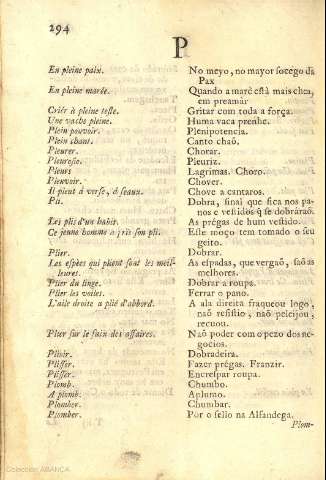 294
P
En pleine paix. No meyo, no mayor socego da
Pax
En pleine marée. Quando a maré está mais chea,
em preamár
Criér à pleine teste. Gritar com toda a força.
Une vache pleine. Huma vaca prenhe.
Plein pouvoir. Plenipotencia.
Plein chant. Canto chaõ.
Pleurer. Chorar.
Pleuresie. Pleuriz.
Pleurs Lagrimas. Choro.
Pleuvoir. Chover.
Il pleut à verse, à seaux. Chove a cantaros.
Pli. Dobra, sinal que fica nos pa-
nos e vestidos q̃ se dobráraõ.
Les plis d'un habit. As prégas de hum vestido.
Ce jeune homme a pris son pli. Este moço tem tomado o seu
geito.
Plier. Dobrar.
Les espées qui plient sont les meil-
leures. As espadas, que vergaõ, saõ as
melhores.
Plier du linge. Dobrar a roupa.
Plier les voiles. Ferrar o pano.
L'aile droite a plié d'abbord. A ala direita fraqueou logo,
naõ resistio, naõ peleijou,
recuou.
Plier sur le faix des affaires. Naõ poder com o pezo dos ne-
gocios.
Dobradeira.
Plisser. Fazer prégas. Franzir.
Encrespar roupa.
Plomb. Chumbo.
A plomb. Aplumo.
Plomber. Chumbar.
Plomber. Por o sello na Alfandega.
Plom-
Colección ABANCA